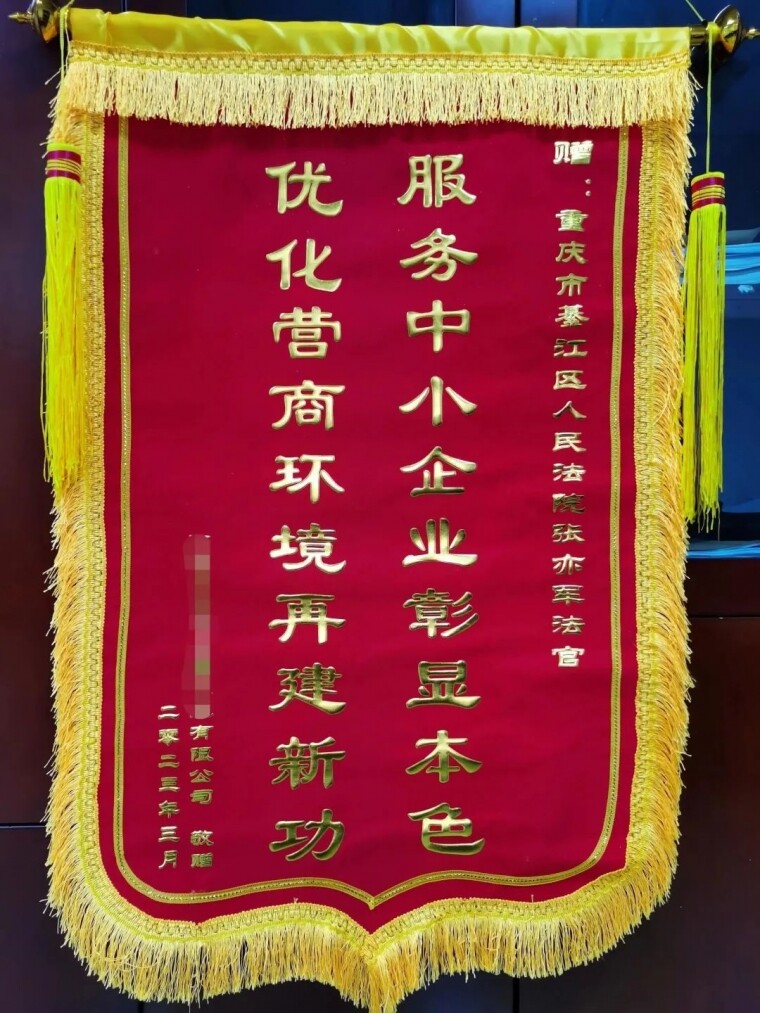 赠：重庆市綦江区人民法院张亦军法官
服务中小企业彰显本色
优化营商环境再建新功
有限公司 敬赠
二零二三年三月